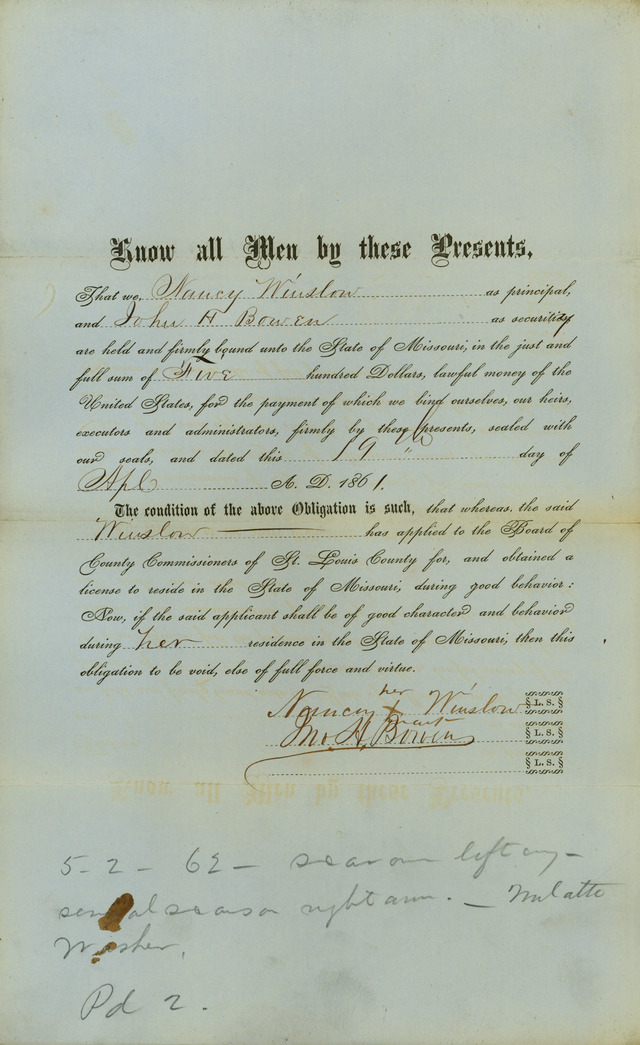 Know all Men by these Presents,
That we, Nancy Winslow as principal,
and John H Bowen as security
are held and firmly bound unto the State of Missouri, in the just and
full sum of Five hundred Dollars, lawful money of the
United States, for the payment of which we bind ourselves, our heirs,
executors and administrators, firmly by these presents, sealed with
our seals, and dated this 19th day of
Apl A. D. 1861.
The condition of the above Obligation is such, that whereas the said
Winslow has applied to the Board of
County Commissioners of St. Louis County for, and obtained a
license to reside in the State of Missouri, during good behavior:
Now, if the said applicant shall be of good character and behavior
during her residence in the State of Missouri, then this
obligation to be void, else of full force and virtue.
her
Nancy X Winslow § L. S. §
mark
Jno. H. Bowen § L. S. §
§ L. S. §
5-2-62- scar on left
several scars on right arm. - Mulatto
Washer.
Pd 2.